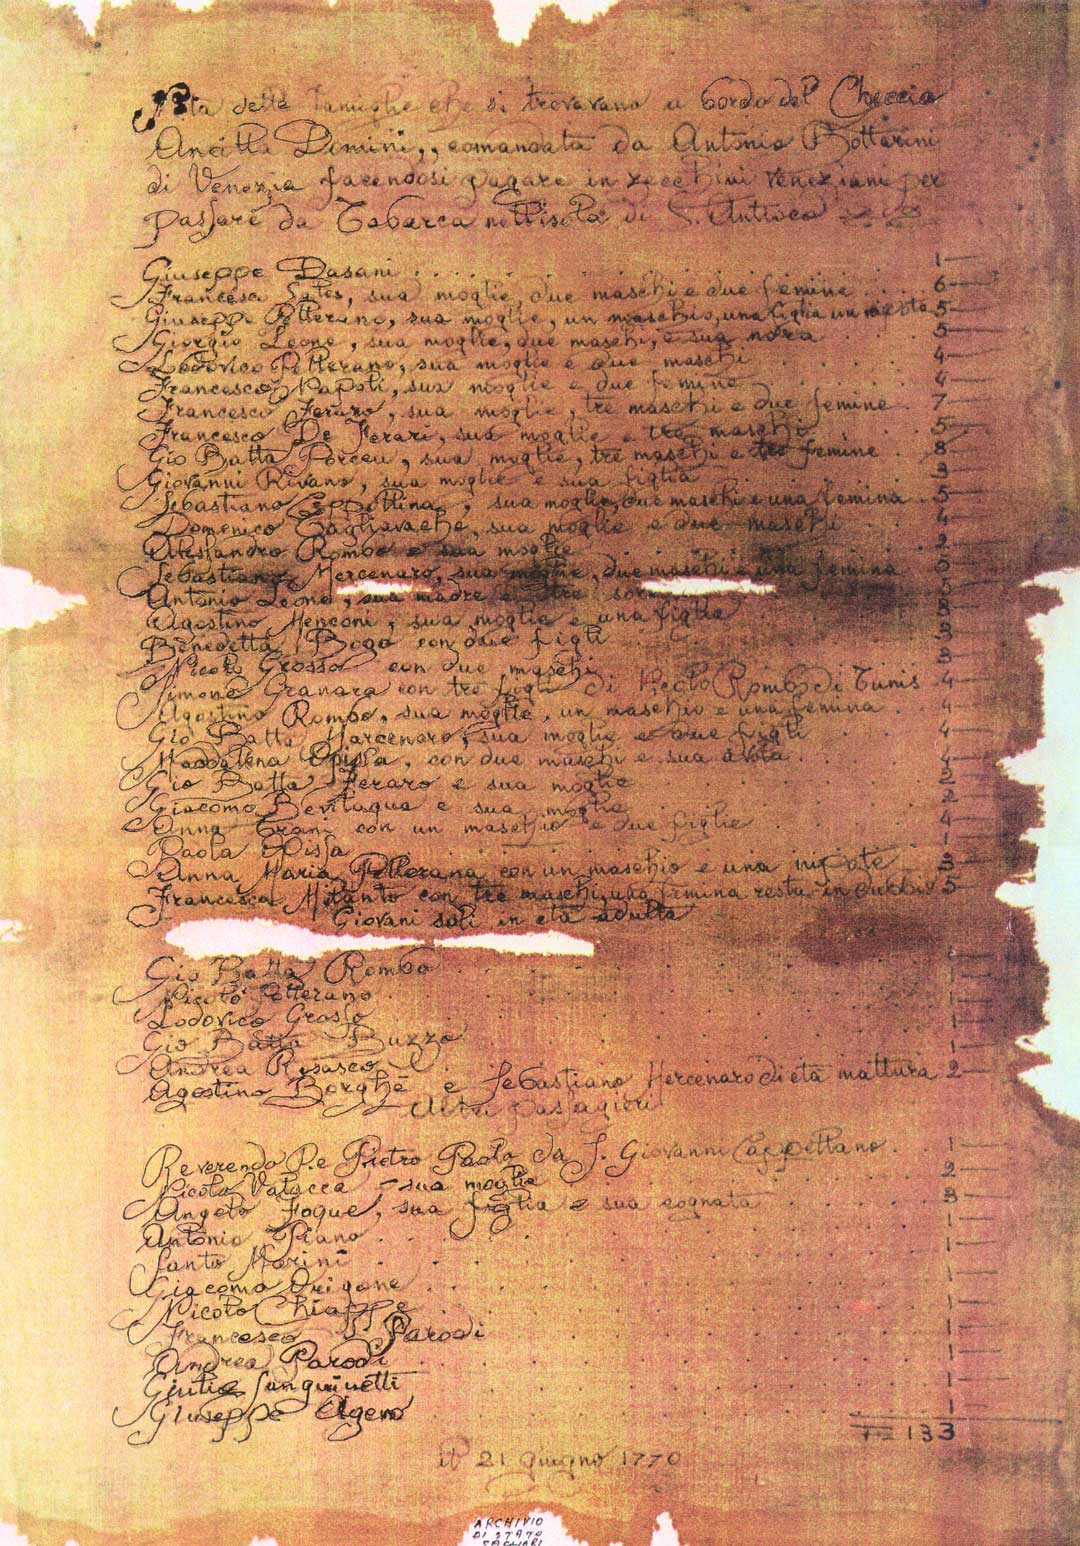 Nota delle famiglie che si trovavano a bordo del Checcia
Ancilla Domini,, comandata da Antonio Bottarini
di Venezia facendosi pagare in zecchini veneziani per
passare da Tabarca nell'isola di S. Antioco
Giuseppe Dasani 1
Francesco, sua moglie, due maschi e due femine 6
Giuseppe Pellerano, sua moglie, un maschio, una figlia un 5
Giorgio Leone, sua moglie, due maschi, e sua nora 5
Lodovico Pellerano, sua moglie e due maschi 4
Francesco Napoli, sua moglie e due femine 4
Francesco Feraro, sua moglie, tre maschi e due femine 7
Francesco De Ferari, sua moglie e tre maschi 5
Gio Batta Porceu, sua moglie, tre maschi e tre femine 8
Giovanni Rivano, sua moglie e sua figlia 3
Sebastiano, sua moglie, due maschi e una femina 5
Domenico Tagliavache, sua moglie e due maschi 4
Alessandro Rombo e sua moglie 2
Sebastiano Mercenaro, sua moglie, due maschi e una femina 5
Antonio Leone, sua madre e tre 5
Agostino Menconi, sua moglie e una figlia 3
Benedetta Bogo con due figli 3
Nicolo Grosso con due maschi 3
Simone Granara con tre figli di Nicolo Rombo di Tunis 4
Agostino Rombo, sua moglie, un maschio e una femina 4
Gio Batta Marcenaro, sua moglie e due figli 4
Maddalena Opissa, con due maschi e sua avola 4
Gio Batta Feraro e sua moglie 2
Giacomo Bevilaqua e sua moglie 2
Anna Grani con un maschio e due figlie 4
Paola Opissa 1
Anna Maria Pellerana con un maschio e una nipote 3
Francesca Milanto con tre maschi, una femina resta in dubbio 5
Giovani soli in età adulta
Gio Batta Rombo 1
Nicolo Pellerano 1
Lodovico Grosso 1
Gio Batta Buzzo 1
Andrea Rosasco 1
Agostino Borghe e Sebastiano Mercenaro di età mattura 2
Altri passagieri
Reverendo P.e Pietro Paolo da S. Giovanni Cappellano 1
Nicola Valacca - sua moglie 2
Angelo Foque, sua figlia e sua cognata 3
Antonio Piano 1
Santo Marini 1
Giacomo Origone 1
Nicolo Chiappe 1
Francesco Parodi 1
Andrea Parodi 1
Giulio Sanguinetti 1
Giuseppe Agero 1
133
il 21 giugno 1770
ARCHIVIO
DI STATO
CAGLIARI